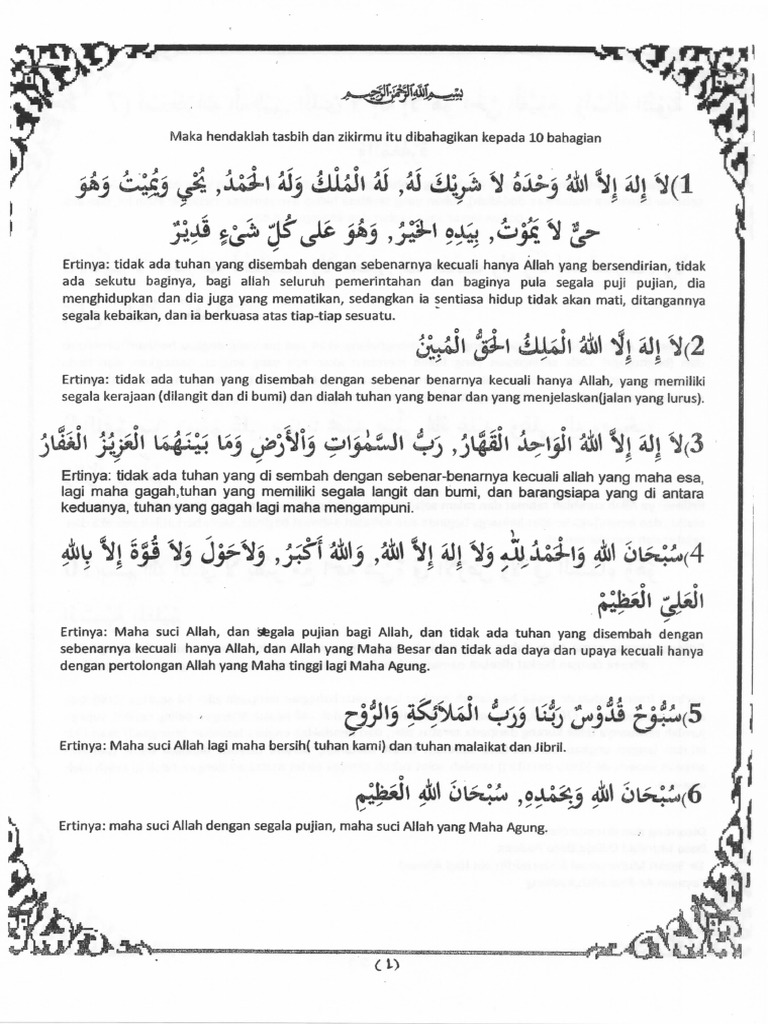 بسم الله الرحمن الرحيم
Maka hendaklah tasbih dan zikirmu itu dibahagikan kepada 10 bahagian
1)لاَ إِلهَ إِلاَّ اللهُ وَحْدَهُ لاَ شَرِيْكَ لَهُ, لَهُ الْمُلْكُ وَلَهُ الْحَمْدُ, يُحْيِ وَيُمِيْتُ وَهُوَ
حىٌّ لاَ يَمُوْتُ, بِيَدِهِ الْخَيْرُ, وَهُوَ عَلى كُلِّ شَىْءٍ قَدِيْرٌ
Ertinya: tidak ada tuhan yang disembah dengan sebenarnya kecuali hanya Allah yang bersendirian, tidak
ada sekutu baginya, bagi allah seluruh pemerintahan dan baginya pula segala puji pujian, dia
menghidupkan dan dia juga yang mematikan, sedangkan ia sentiasa hidup tidak akan mati, ditangannya
segala kebaikan, dan ia berkuasa atas tiap-tiap sesuatu.
2)لاَ إِلهَ إِلَّا اللهُ الْمَلِكُ الْحَقُّ الْمُبِيْنُ
Ertinya: tidak ada tuhan yang disembah dengan sebenar benarnya kecuali hanya Allah, yang memiliki
segala kerajaan (dilangit dan di bumi) dan dialah tuhan yang benar dan yang menjelaskan(jalan yang lurus).
3)لاَ إِلهَ إِلاَّ اللهُ الْوَاحِدُ الْقَهَّارُ, رَبُّ السَّمٰوَاتِ وَاْلأَرْضِ وَمَا بَيْنَهُمَا الْعَزِيْزُ الْغَفَّارُ
Ertinya: tidak ada tuhan yang di sembah dengan sebenar-benarnya kecuali allah yang maha esa,
lagi maha gagah,tuhan yang memiliki segala langit dan bumi, dan barangsiapa yang di antara
keduanya, tuhan yang gagah lagi maha mengampuni.
4)سُبْحَانَ اللهِ وَالْحَمْدُ لِلّٰهِ وَلاَ إِلهَ إِلاَّ اللهُ, وَاللهُ أَكْبَرُ, وَلاَحَوْلَ وَلاَ قُوَّةَ إِلاَّ بِاللهِ
الْعَلِيِّ الْعَظِيْمْ
Ertinya: Maha suci Allah, dan segala pujian bagi Allah, dan tidak ada tuhan yang disembah dengan
sebenarnya kecuali hanya Allah, dan Allah yang Maha Besar dan tidak ada daya dan upaya kecuali hanya
dengan pertolongan Allah yang Maha tinggi lagi Maha Agung.
5)سُبُّوْحٌ قُدُّوْسٌ رَبُّنَا وَرَبُّ الْمَلاَئِكَةِ وَالرُّوْحِ
Ertinya: Maha suci Allah lagi maha bersih( tuhan kami) dan tuhan malaikat dan Jibril.
6)سُبْحَانَ اللهِ وَبِحَمْدِهِ, سُبْحَانَ اللهِ الْعَظِيْمِ
Ertinya: maha suci Allah dengan segala pujian, maha suci Allah yang Maha Agung.
(1)